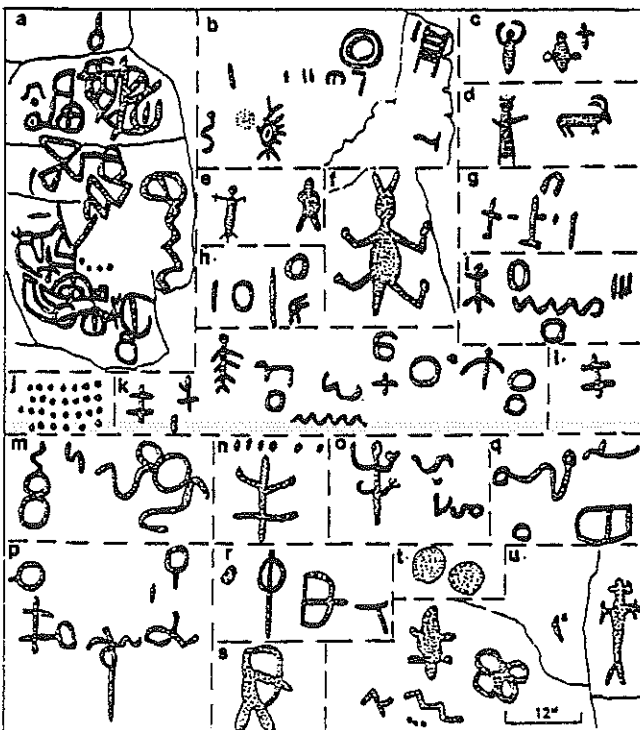 a
b
c
d
e
f
g
h.
i
j
k
l.
m
n
o
q
p
r
t.
u.
s
12"